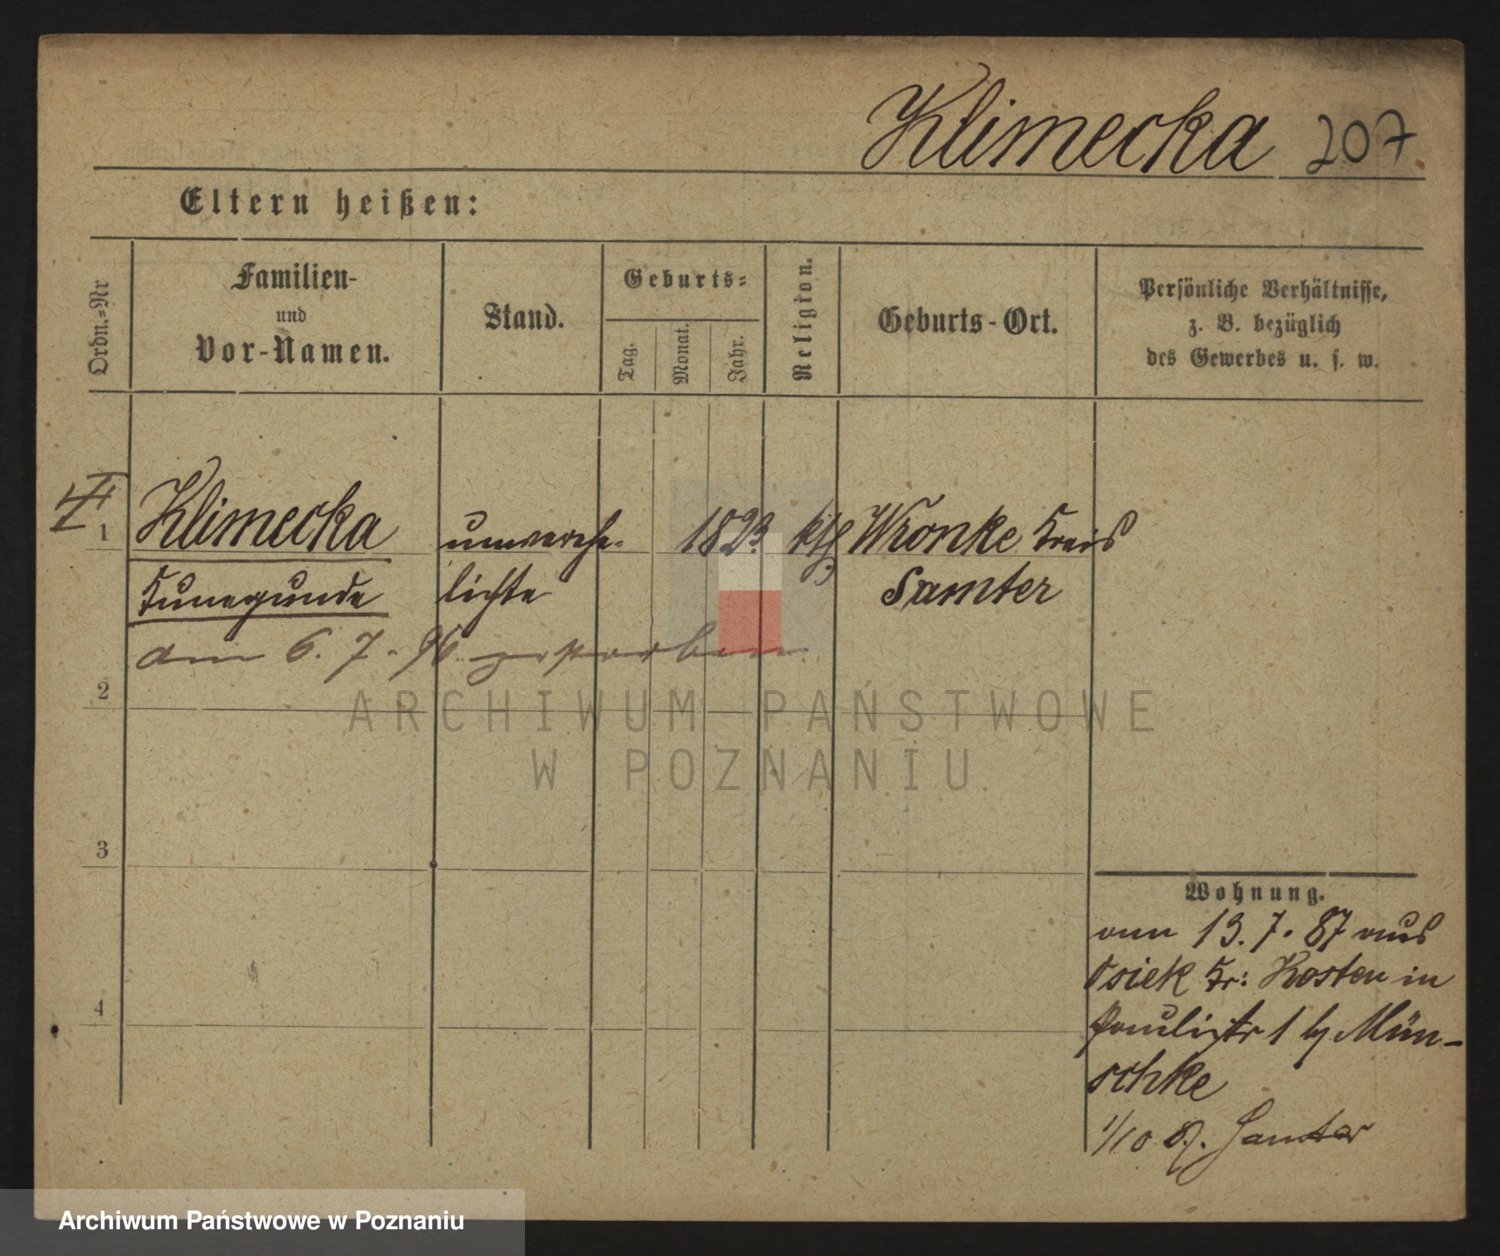 Klimecka 207
Eltern heißen:
Ordn.=Nr
Familien-
und
Vor-Namen.
Stand.
Geburts=
Tag.
Monat.
Jahr.
Religion.
Geburts-Ort.
Persönliche Verhältnisse,
z. B. bezüglich
des Gewerbes u. s. w.
II
1
Klimecka unverehe- 1823 kth Wronke Kreis
Kunegunde lichte Samter
am 6. 7. 96 gestorben
2
3
4
Wohnung.
vom 13. 7. 87 aus
Osiek Kr: Kosten in
Paulistr 1 b/ Mün-
schke
1/10 87. Samter
ARCHIWUM PAŃSTWOWE
W POZNANIU
Archiwum Państwowe w Poznaniu